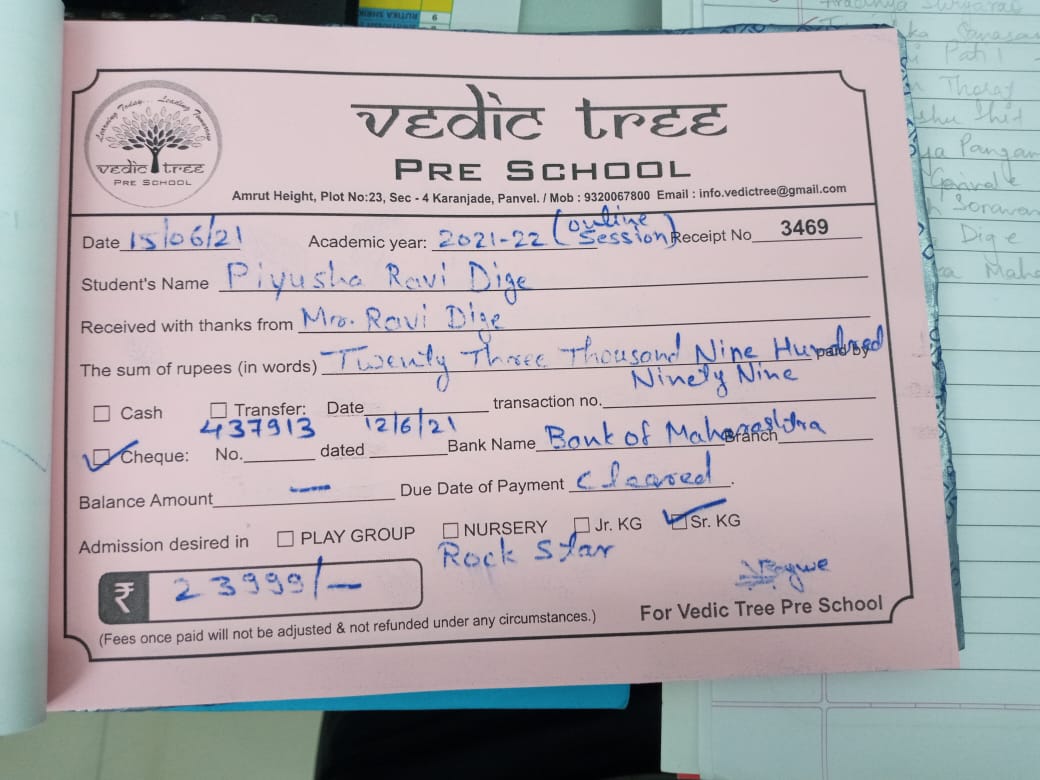 Learning Today... Leading Tomorrow
vedic tree
PRE SCHOOL
vedic tree
PRE SCHOOL
Amrut Height, Plot No:23, Sec - 4 Karanjade, Panvel. / Mob : 9320067800 Email : info.vedictree@gmail.com
Date 15/06/21 Academic year: 2021-22 (online Session) Receipt No 3469
Student's Name Piyusha Ravi Dige
Received with thanks from Mrs. Ravi Dige
The sum of rupees (in words) Twenty Three Thousand Nine Hundred paid by
Ninety Nine
Cash Transfer: Date transaction no.
Cheque: No. 437913 dated 12/6/21 Bank Name Bank of Maharashtra Branch
Balance Amount — Due Date of Payment Cleared.
Admission desired in PLAY GROUP NURSERY Jr. KG Sr. KG
Rock Star
₹ 23999/—
(Fees once paid will not be adjusted & not refunded under any circumstances.) For Vedic Tree Pre School
Patil
Dige